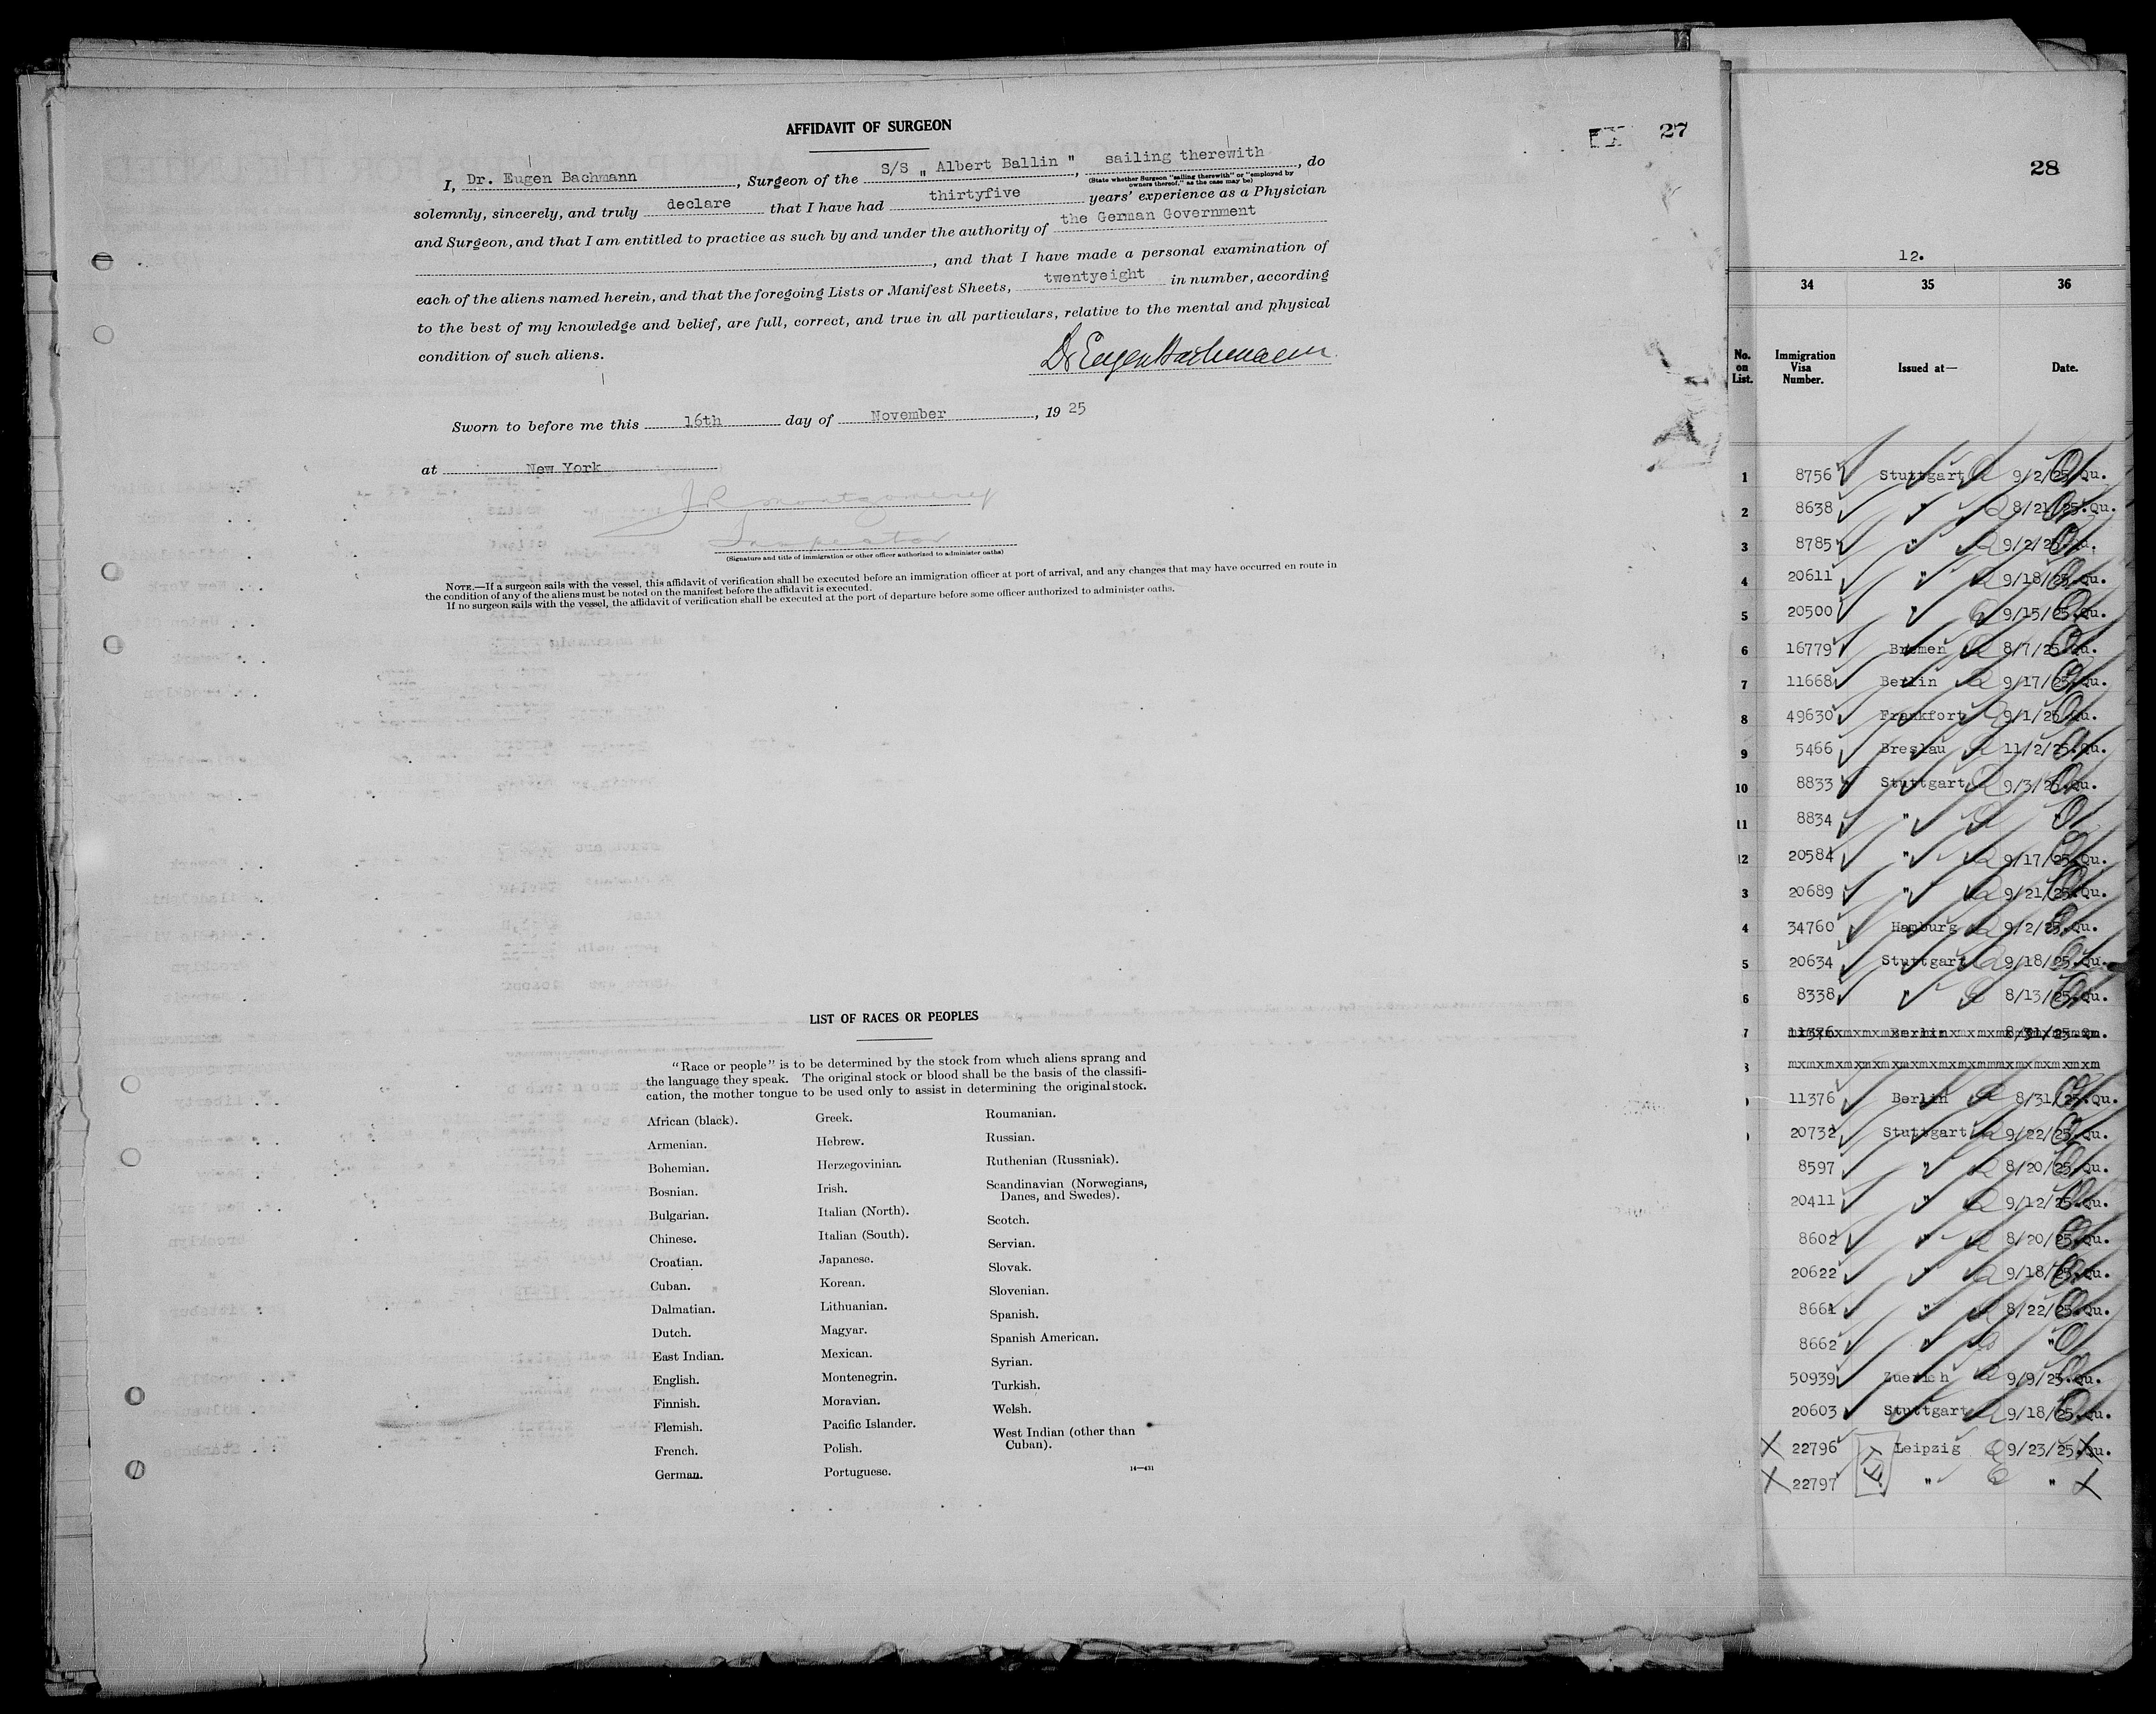 AFFIDAVIT OF SURGEON
27
I, Dr. Eugen Bachmann, Surgeon of the S/S „ Albert Ballin ", sailing therewith, do
(State whether Surgeon "sailing therewith" or "employed by owners thereof," as the case may be)
solemnly, sincerely, and truly declare that I have had thirtyfive years' experience as a Physician
and Surgeon, and that I am entitled to practice as such by and under the authority of the German Government
, and that I have made a personal examination of
each of the aliens named herein, and that the foregoing Lists or Manifest Sheets, twentyeight in number, according
to the best of my knowledge and belief, are full, correct, and true in all particulars, relative to the mental and physical
condition of such aliens.
Dr Eugen Bachmann
Sworn to before me this 16th day of November, 1925
at New York
J R Montgomery
Inspector
(Signature and title of immigration or other officer authorized to administer oaths)
NOTE.—If a surgeon sails with the vessel, this affidavit of verification shall be executed before an immigration officer at port of arrival, and any changes that may have occurred en route in
the condition of any of the aliens must be noted on the manifest before the affidavit is executed.
If no surgeon sails with the vessel, the affidavit of verification shall be executed at the port of departure before some officer authorized to administer oaths.
LIST OF RACES OR PEOPLES
"Race or people" is to be determined by the stock from which aliens sprang and
the language they speak. The original stock or blood shall be the basis of the classifi-
cation, the mother tongue to be used only to assist in determining the original stock.
African (black).
Armenian.
Bohemian.
Bosnian.
Bulgarian.
Chinese.
Croatian.
Cuban.
Dalmatian.
Dutch.
East Indian.
English.
Finnish.
Flemish.
French.
German.
Greek.
Hebrew.
Herzegovinian.
Irish.
Italian (North).
Italian (South).
Japanese.
Korean.
Lithuanian.
Magyar.
Mexican.
Montenegrin.
Moravian.
Pacific Islander.
Polish.
Portuguese.
Roumanian.
Russian.
Ruthenian (Russniak).
Scandinavian (Norwegians,
Danes, and Swedes).
Scotch.
Servian.
Slovak.
Slovenian.
Spanish.
Spanish American.
Syrian.
Turkish.
Welsh.
West Indian (other than
Cuban).
14—431
28
12.
34 35 36
No. on List. Immigration Visa Number. Issued at— Date.
1 8756 Stuttgart 9/2/25.Qu.
2 8638 " 8/21/25.Qu.
3 8785 " 9/2/25.Qu.
4 20611 " 9/18/25.Qu.
5 20500 " 9/15/25.Qu.
6 16779 Bremen 8/7/25.Qu.
7 11668 Berlin 9/17/25.Qu.
8 49630 Frankfort 9/1/25.Qu.
9 5466 Breslau 11/2/25.Qu.
10 8833 Stuttgart 9/3/25.Qu.
11 8834 "
12 20584 " 9/17/25.Qu.
3 20689 " 9/21/25.Qu.
4 34760 Hamburg 9/2/25.Qu.
5 20634 Stuttgart 9/18/25.Qu.
6 8338 " 8/13/25.Qu.
7 11376 Berlin 8/31/25.Qu.
mxmxmxmxmxmxmxmxmxmxmmmxmxmxmxmxm
11376 Berlin 8/31/25.Qu.
20732 Stuttgart 9/22/25.Qu.
8597 " 8/20/25.Qu.
20411 " 9/12/25.Qu.
8602 " 8/20/25.Qu.
20622 " 9/18/25.Qu.
8661 " 8/22/25.Qu.
8662 " "
50939 Zuerich 9/9/25.Qu.
20603 Stuttgart 9/18/25.Qu.
X 22796 Leipzig 9/23/25.Qu.
X 22797 " " X